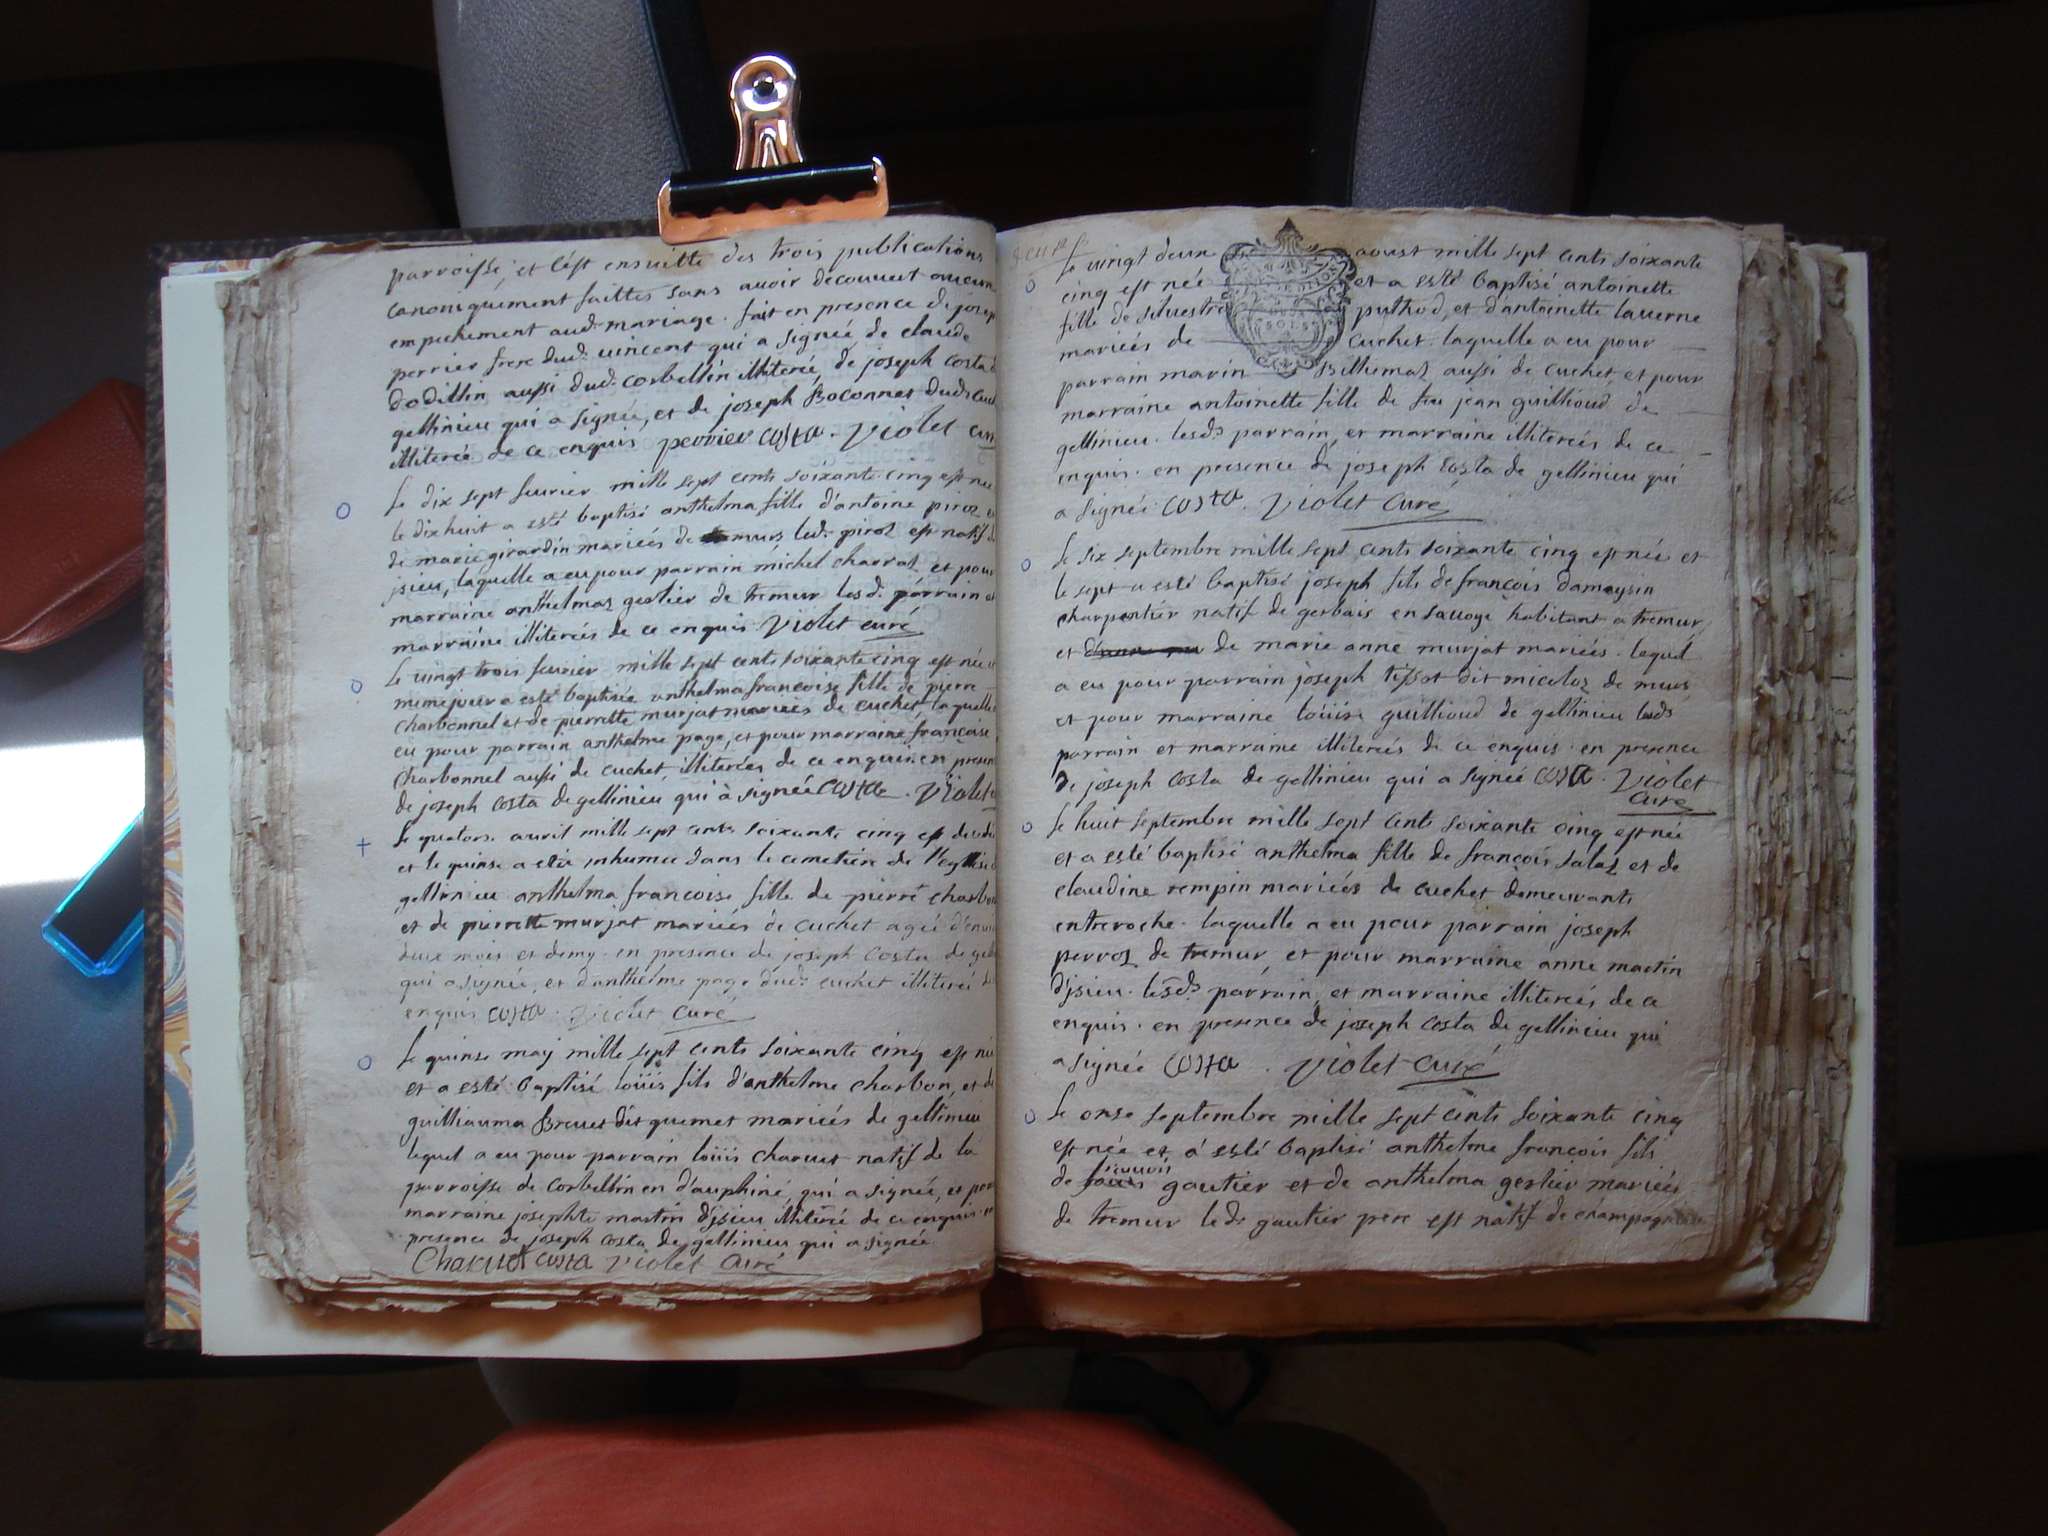 parroisse, et c'est ensuitte des trois publications
canoniquement faittes sans avoir decouvert aucun
empechement aud. mariage. fait en presence de josep
perrier frere dud. vincent qui a signé, de claude
dodillin aussi dud. corbellin illiteré, de joseph costa d
gellinieu qui a signé, et de joseph Boconnet dud. cuch
illiteré de ce enquis perrier costa. Violet curé
Le dix sept fevrier mille sept cents soixante cinq est née
le dix huit a esté baptisé anthelma fille d'antoine piroz et
de marie girardin mariées de murs led. piroz est natif d
jsieu, laquelle a eu pour parrain michel charraz, et pour
marraine anthelmaz gerlier de tremur lesd. parrain et
marraine illiterés de ce enquis. Violet curé
Le vingt trois fevrier mille sept cents soixante cinq est née
meme jour a esté baptisée anthelma francoise fille de pierre
charbonnel et de pierrette murjat mariées de cuchet, laquelle
eu pour parrain anthelme page, et pour marraine françoise
charbonnel aussi de cuchet, illiterées de ce enquis. en presen
de joseph costa de gellinieu qui à signée costa. Violet
Le quatorse avril mille sept cents soixante cinq est decedé
et le quinse a esté inhumée dans le cemetiere de l'eglise
gellinieu anthelma francoise fille de pierre charbon
et de pierrette murjat mariées de cuchet agée d'envi
deux mois et demy. en presence de joseph costa de gell
qui a signée, et d'anthelme page dud. cuchet illiteré de
enquis costa. Violet curé
Le quinse may mille sept cents soixante cinq est né
et a esté baptisé loüis fils d'anthelme charbon, et de
guilliauma Brevet dit quemet mariées de gellinieu
lequel a eu pour parrain loüis charvet natif de la
parroisse de corbellin en d'auphiné, qui a signée, et pour
marraine josephte martin d'jsieu illiterée de ce enquis en
presence de joseph costa de gellinieu qui a signée
Charvet costa violet curé
Le vingt deux aoust mille sept cents soixante
cinq est née et a esté baptisé antoinette
fille de silvestre puthod, et d'antoinette laverne
mariées de cuchet. laquelle a eu pour
parrain marin Billiemaz aussi de cuchet, et pour
marraine antoinette fille de feu jean guillioud de
gellinieu. lesds. parrain, et marraine illiterés de ce
enquis. en presence de joseph costa de gellinieu qui
a signée costa. Violet curé
Le six septembre mille sept cents soixante cinq est née et
le sept a esté baptisé joseph fils de françois damaysin
charpentier natif de gerbais en savoye habitant a tremur
et de marie anne murjat mariées. lequel
a eu pour parrain joseph tissot dit miceloz de murs
et pour marraine loüise guillioud de gellinieu lesds
parrain et marraine illiterés de ce enquis. en presence
de joseph costa de gellinieu qui a signée costa. Violet
curé
Le huit septembre mille sept cents soixante cinq est née
et a esté baptisé anthelma fille de françois salaz et de
claudine rempin mariées de cuchet demeurants
entreroche. laquelle a eu pour parrain joseph
perroz de tremur, et pour marraine anne martin
d'jsieu. lesds. parrain, et marraine illiterés de ce
enquis. en presence de joseph costa de gellinieu qui
a signée costa. Violet curé
Le onse septembre mille sept cents soixante cinq
est née et à esté baptisé anthelme françois fils
de françois gautier et de anthelma gerlier mariées
de tremur led. gautier pere est natif de champagne